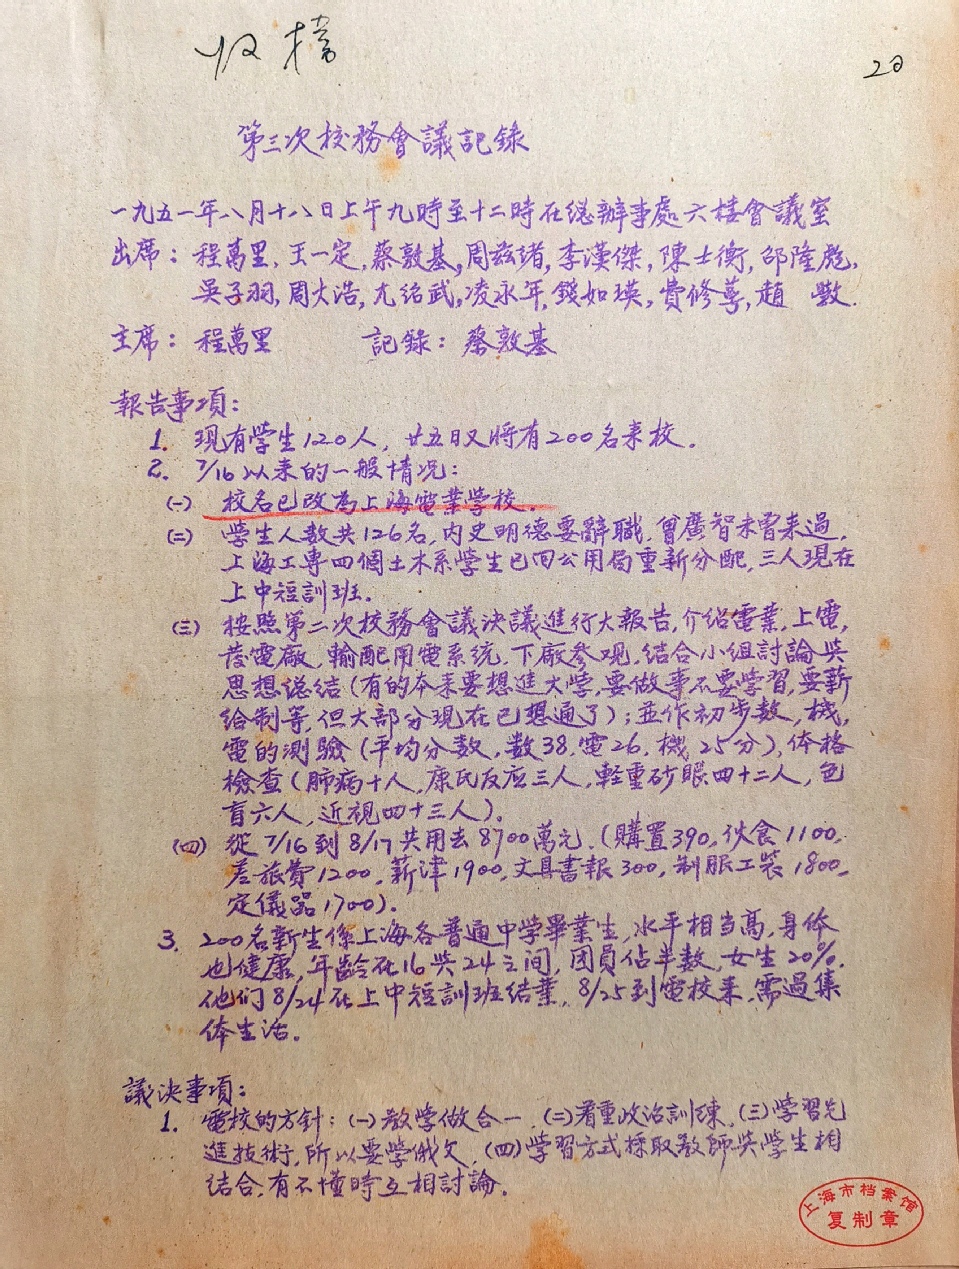 收檔
20
第三次校務會議記錄
一九五一年八月十八日上午九時至十二時在總辦事處六樓會議室
出席：程萬里，王一定，蔡敦基，周兹緒，李漢傑，陳士衡，邵隆彪，
吳子羽，周大浩，尤紹武，凌永年，錢如瑛，費修蓴，趙
主席：程萬里 記錄：蔡敦基
報告事項：
1. 現有学生120人，廿五日又將有200名來校。
2. 7/16以來的一般情况：
(一) 校名已改為上海電業学校。
(二) 学生人数共126名，内史明德要辭職，曾廣智未曾來過，
上海工專四個土木系学生已回公用局重新分配，三人現在
上中短訓班。
(三) 按照第二次校務會議決議進行大報告，介紹電業，上電，
發電廠，輸配用電系統，下廠参观，结合小組討論與
思想總結（有的本来要想進大学，要做事不要学習，要薪
給制等，但大部分現在已想通了）；並作初步数，機，
電的測驗（平均分数，数38，電26，機25分），体格
檢查（肺病十人，康氏反应三人，輕重砂眼四十二人，色
盲六人，近視四十三人）。
(四) 從7/16到8/17共用去8700萬元，（購置390，伙食1100，
差旅費1200，薪津1900，文具書報300，制服工裝1800，
定儀器1700）。
3. 200名新生係上海各普通中学畢業生，水平相当高，身体
也健康，年龄在16與24之间，团員佔半数，女生20%，
他们8/24在上中短訓班结業，8/25到電校来，需過集
体生活。
議決事項：
1. 電校的方針：(一)教学做合一，(二)着重政治訓練，(三)学習先
進技術，所以要学俄文，(四)学習方式採取教師與学生相
结合，有不懂時互相討論。
上海市档案馆
复制章